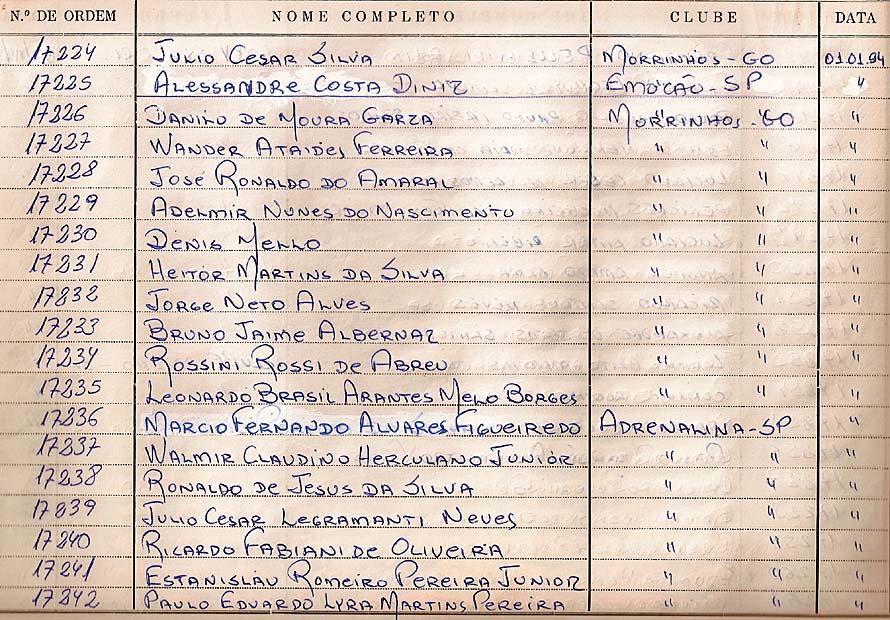 N.º DE ORDEM NOME COMPLETO CLUBE DATA
17224 JULIO CESAR SILVA MORRINHOS - GO 01.01.94
17225 ALESSANDRE COSTA DINIZ EMOÇÃO - SP "
17226 DANILO DE MOURA GARZA MORRINHOS - GO "
17227 WANDER ATAIDES FERREIRA " " "
17228 JOSÉ RONALDO DO AMARAL " " "
17229 ADELMIR NUNES DO NASCIMENTO " " "
17230 DENIS MELLO " " "
17231 HEITOR MARTINS DA SILVA " " "
17232 JORGE NETO ALVES " " "
17233 BRUNO JAIME ALBERNAZ " " "
17234 ROSSINI ROSSI DE ABREU " " "
17235 LEONARDO BRASIL ARANTES MELO BORGES " " "
17236 MARCIO FERNANDO ALVARES FIGUEIREDO ADRENALINA - SP "
17237 WALMIR CLAUDINO HERCULANO JUNIOR " " "
17238 RONALDO DE JESUS DA SILVA " " "
17239 JULIO CESAR LEGRAMANTI NEVES " " "
17240 RICARDO FABIANI DE OLIVEIRA " " "
17241 ESTANISLAU ROMEIRO PEREIRA JUNIOR " " "
17242 PAULO EDUARDO LYRA MARTINS PEREIRA " " "